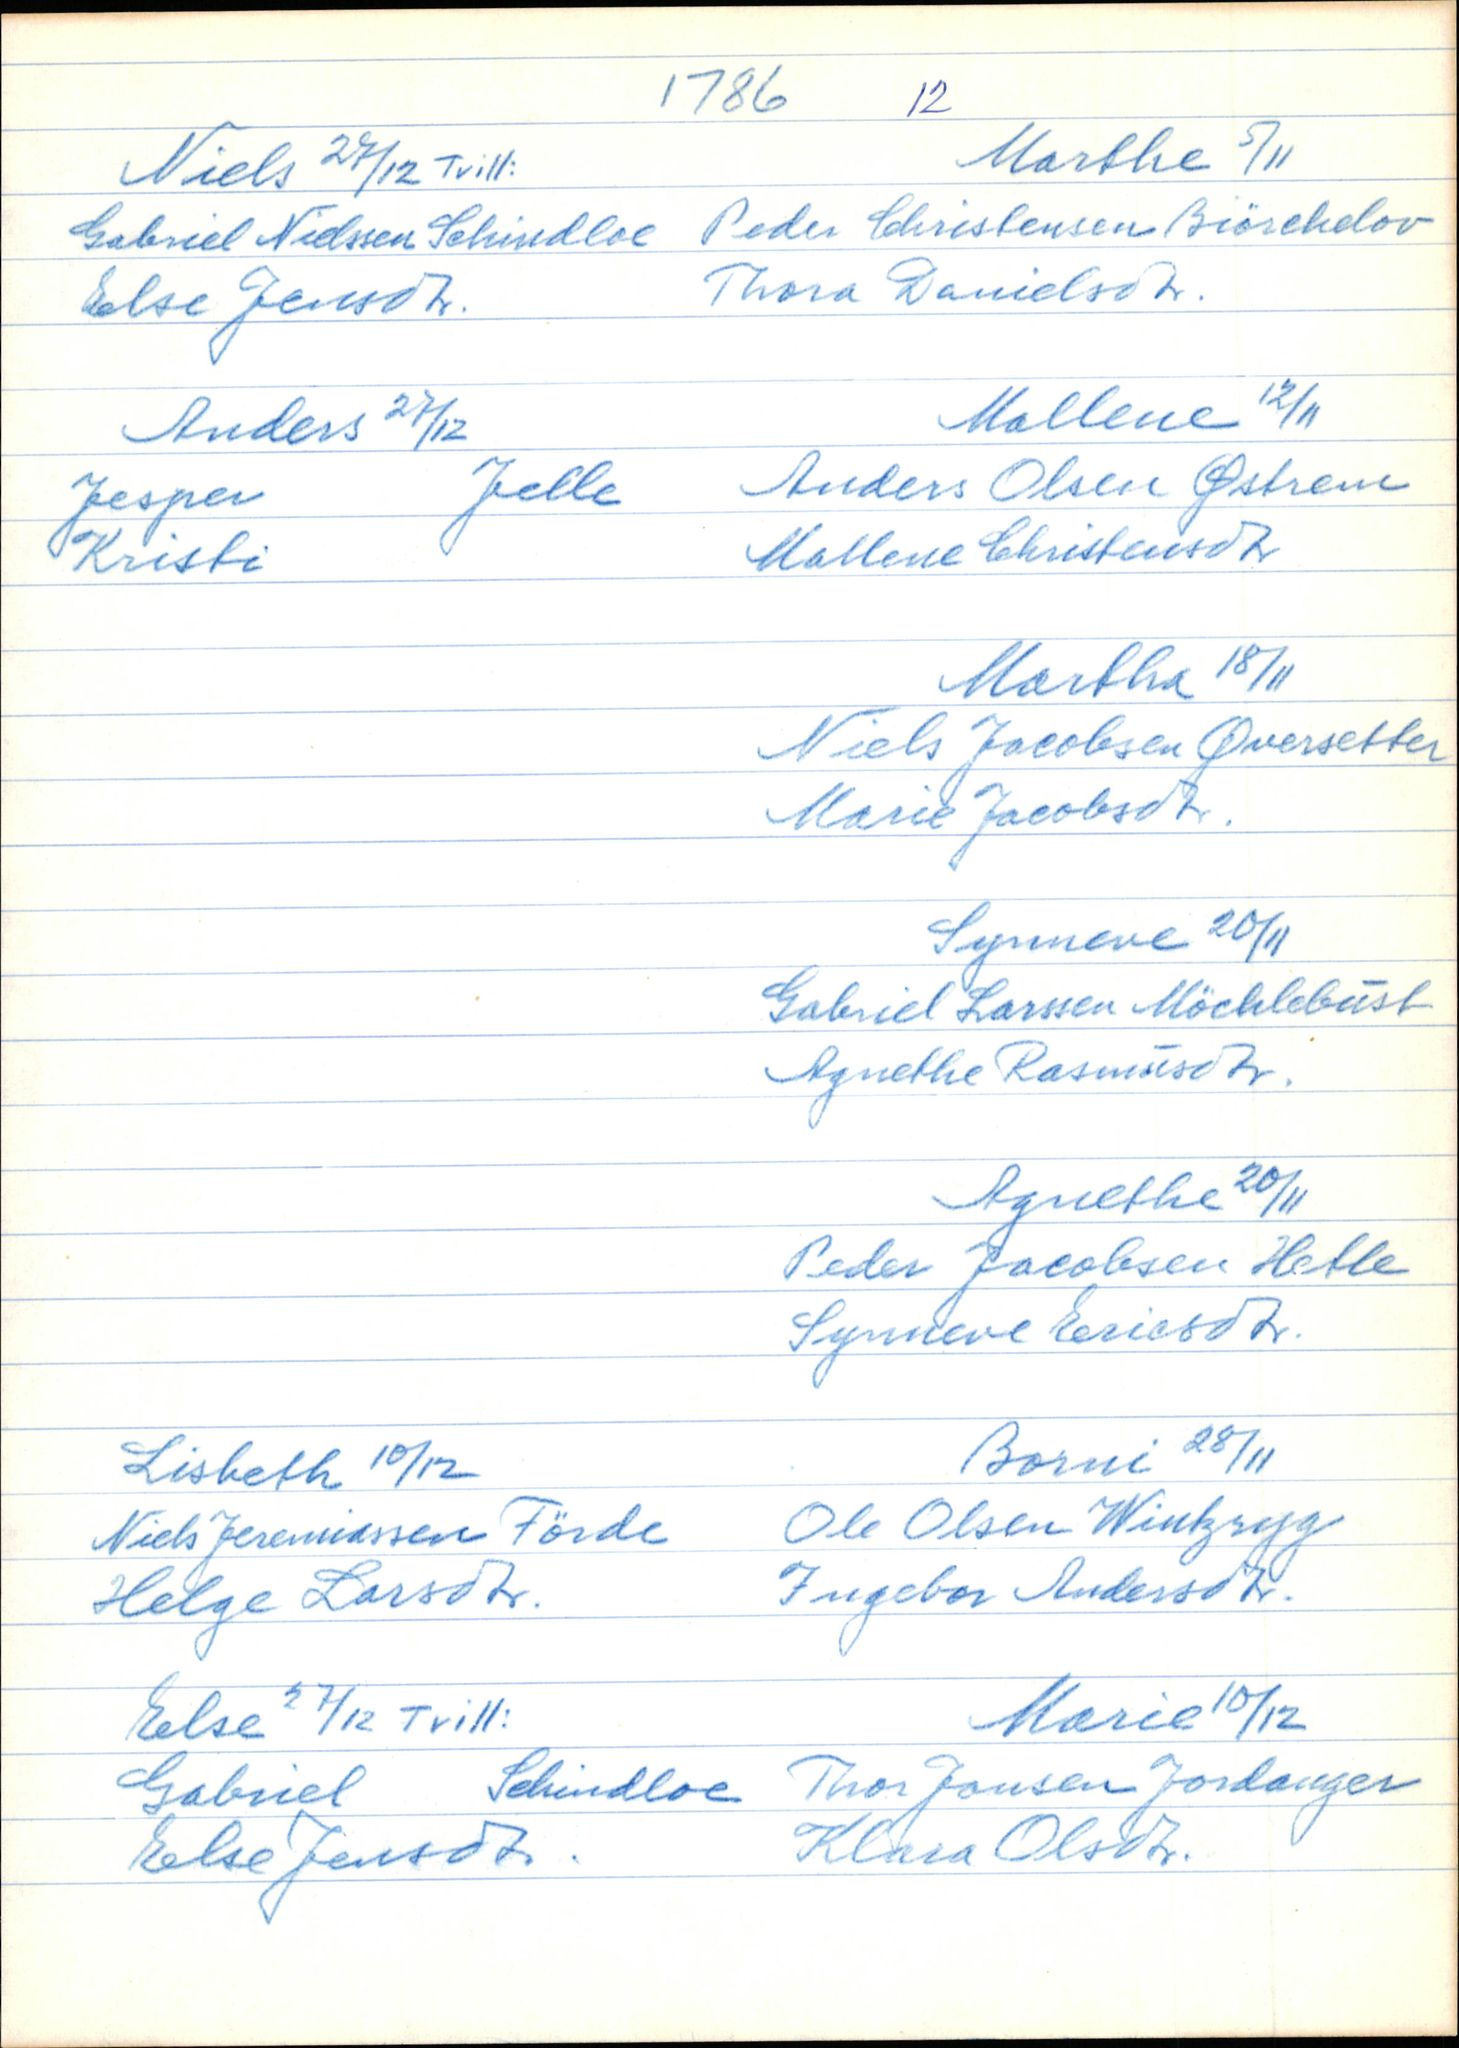 1786 12
Niels 27/12 Tvill:
Gabriel Nielssen Schindloe
Else Jensdtr.
Anders 27/12
Jesper Jelle
Kristi
Lisbeth 10/12
Niels Jeremiassen Förde
Helge Larsdtr.
Else 27/12 Tvill:
Gabriel Schindloe
Else Jensdtr.
Marthe 5/11
Peder Christensen Biörchelov
Thora Danielsdtr.
Mallene 12/11
Anders Olsen Østrem
Mallene Christensdtr
Martha 18/11
Niels Jacobsen Øversetter
Marie Jacobsdtr.
Synneve 20/11
Gabriel Larssen Möchlebust
Agnethe Rasmusdtr.
Agnethe 20/11
Peder Jacobsen Hetle
Synneve Ericsdtr.
Borni 28/11
Ole Olsen Wintzryg
Ingebor Andersdtr.
Marie 10/12
Thor Jonsen Jordanger
Klara Olsdtr.